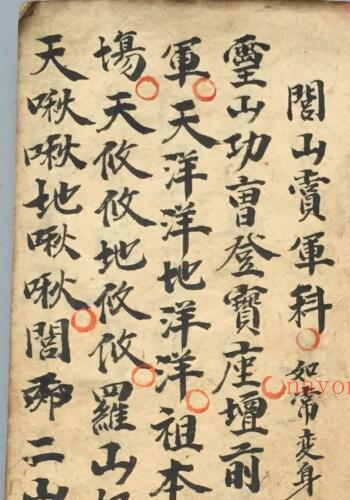 閭山賞軍科 如常变身
靈山功曺登寶座壇前
軍天洋洋地洋洋祖本
塲天攸攸地攸攸羅山
天啾啾地啾啾閭二山
nayon